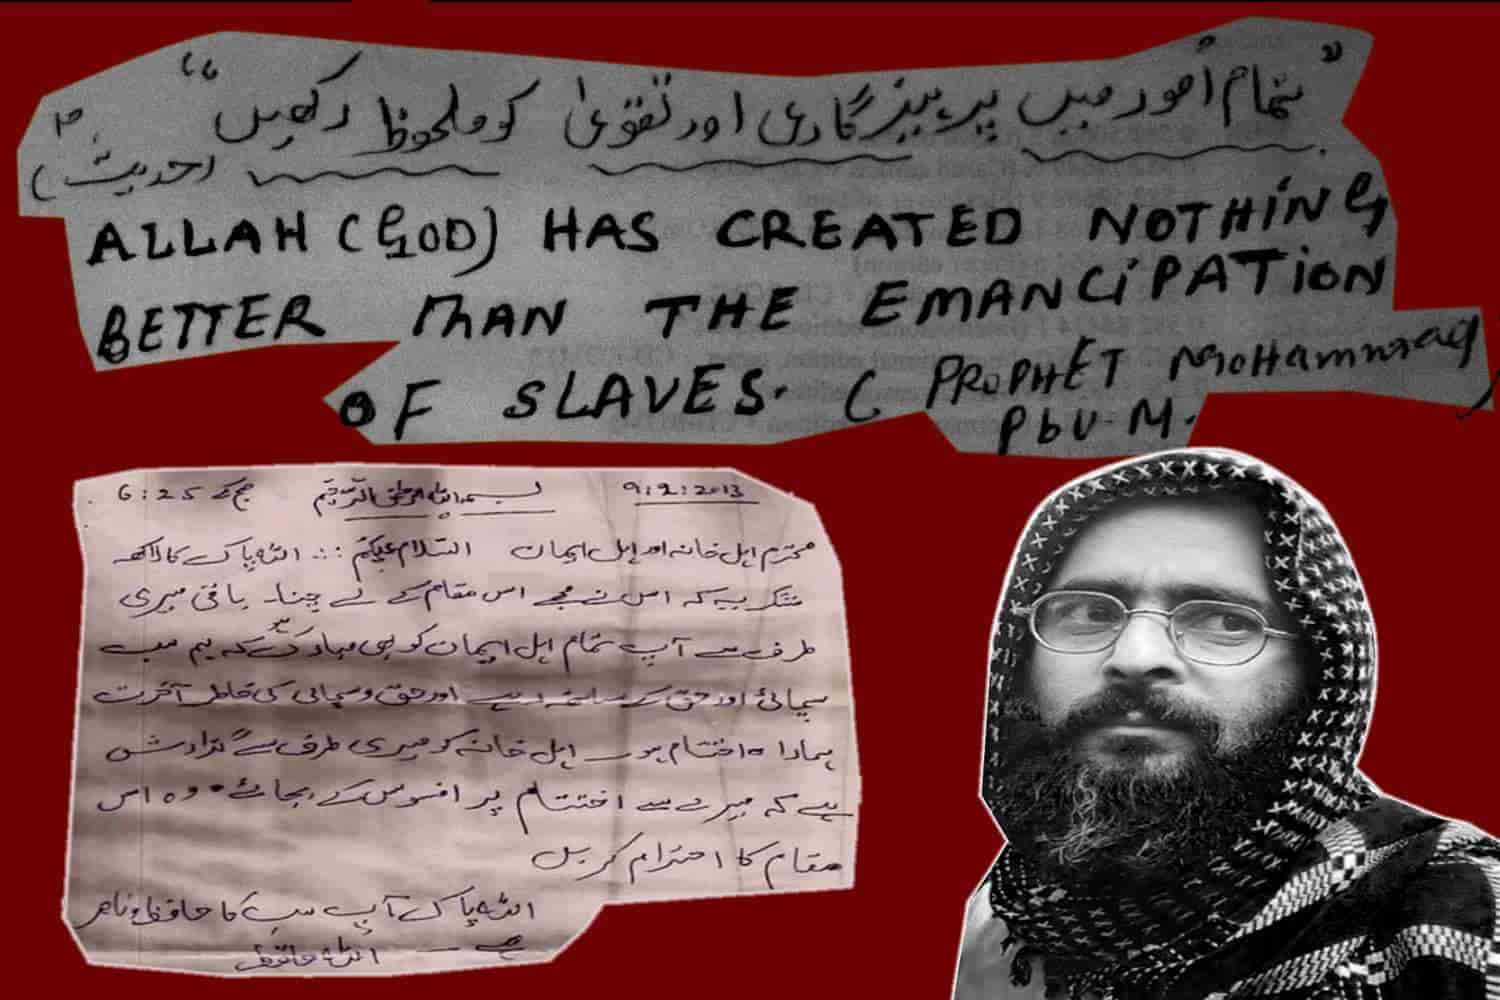 "تمام امور میں پرہیزگاری اور تقویٰ کو ملحوظ رکھیں"
(حدیث)
ALLAH (GOD) HAS CREATED NOTHING
BETTER THAN THE EMANCIPATION
OF SLAVES. ( PROPHET MOHAMMAD
PbU-M.
9:2:2013 بسم اللہ الرحمٰن الرحیم صبح کے 6:25
محترم اہل خانہ اور اہل ایمان السلام علیکم :: اللہ پاک کا لاکھ
شکر ہے کہ اس نے مجھے اس مقام کے لے چنا۔ باقی میری
طرف سے آپ تمام اہل ایمان کو بھی مبارک کہ ہم سب
سچائی اور حق کے ساتھ رہے اور حق و سچائی کی خاطر آخرت
ہمارا اختتام ہو۔ اہل خانہ کو میری طرف سے گزارش
ہے کہ میرے اختتام پر افسوس کے بجائے وہ اس
مقام کا احترام کریں
اللہ پاک آپ سب کا حافظ و ناصر
ہے۔ اللہ حافظ